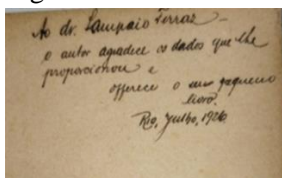 Ao dr. Sampaio Ferraz –
o autor agradece os dados que lhe
proporcionou e
offerece o seu pequeno
livro.
Rio, Julho, 1926